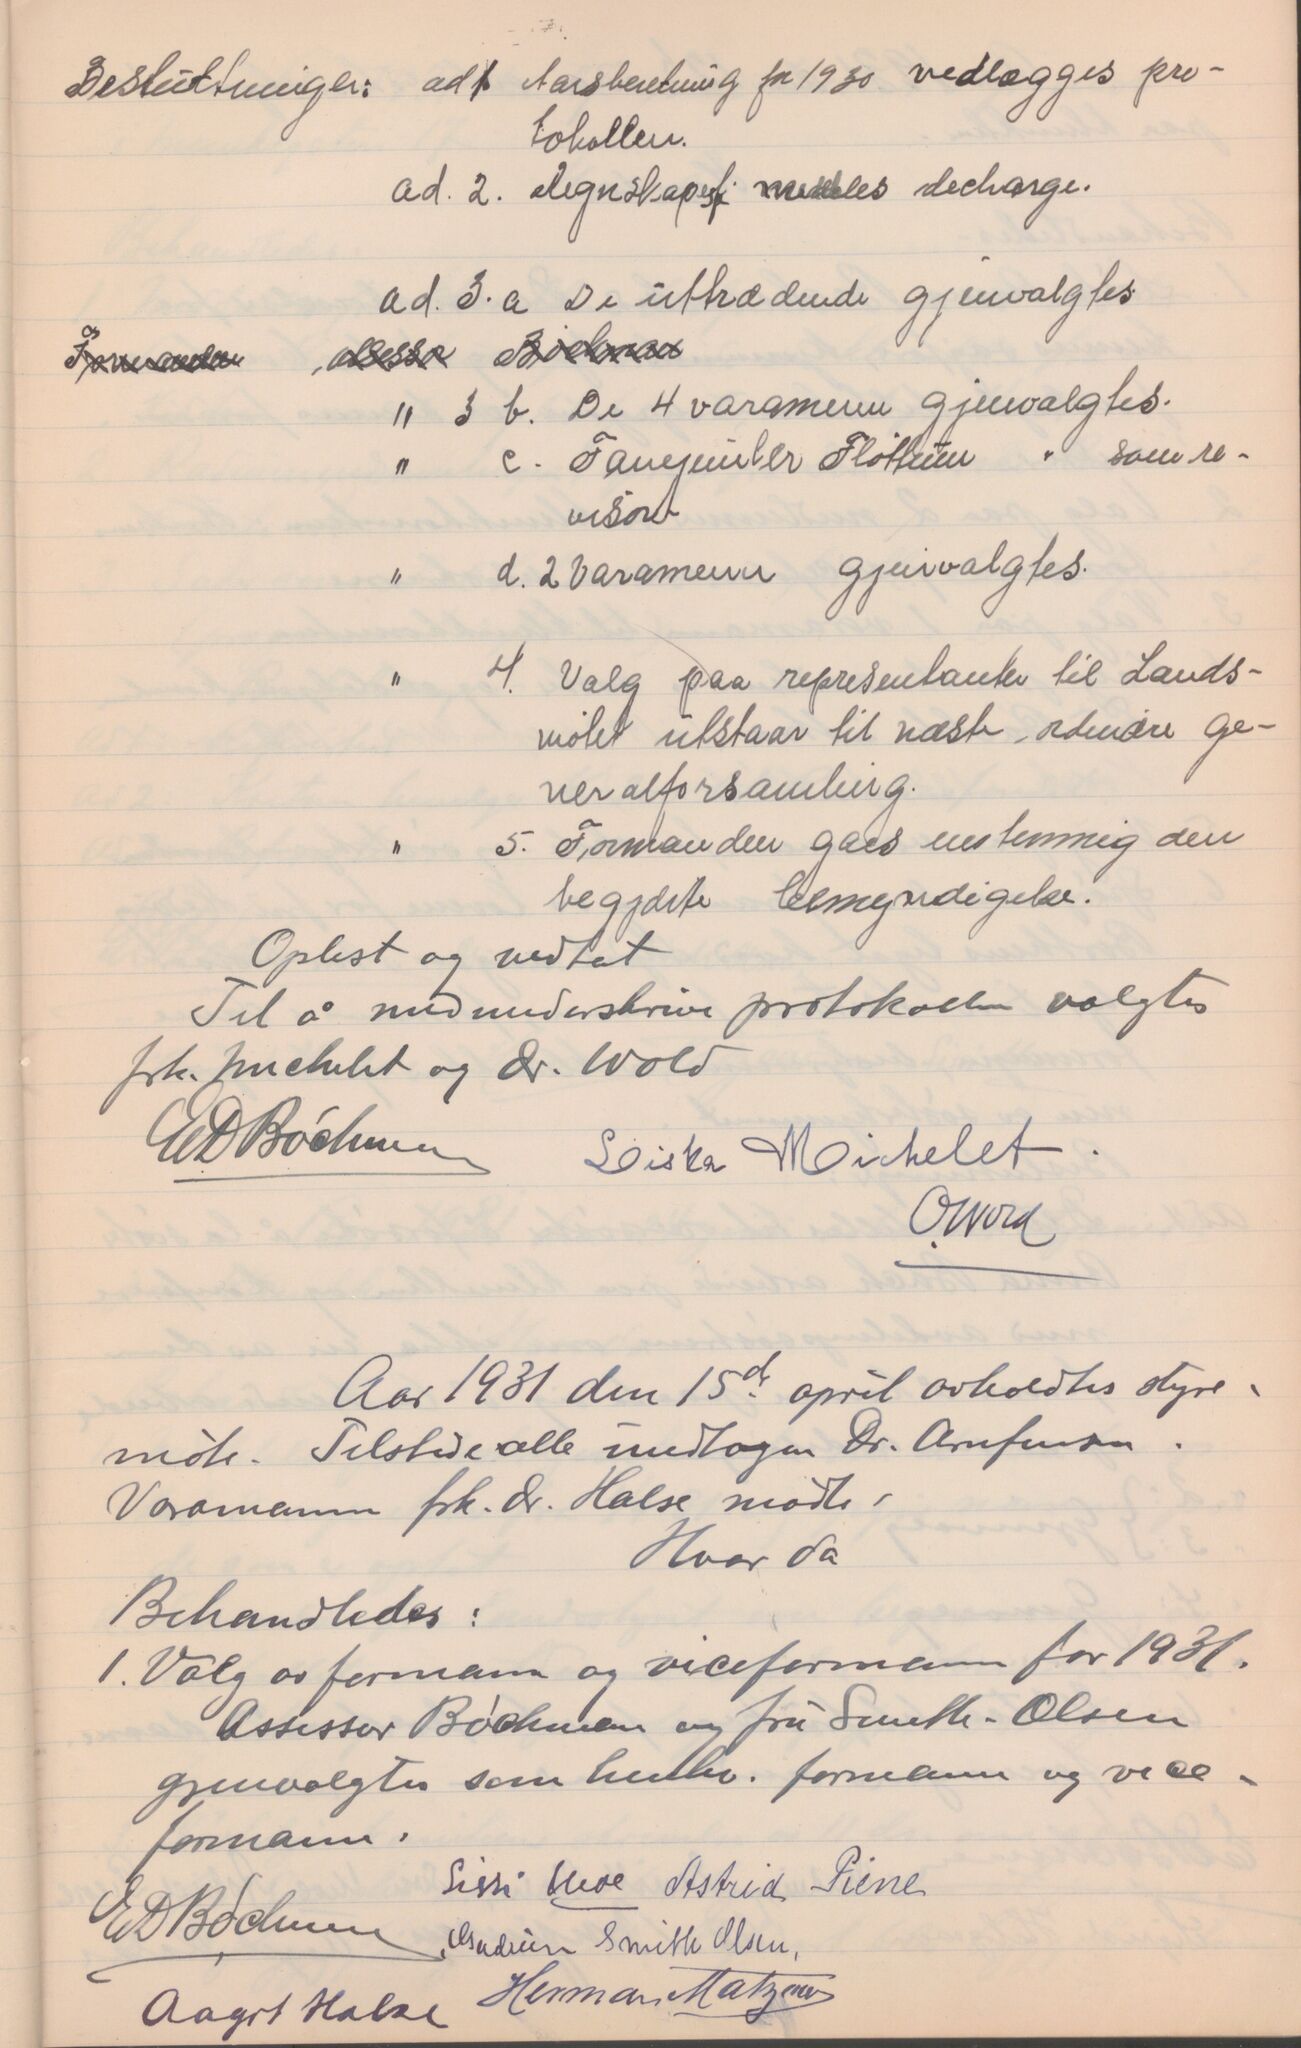 Beslutninger: ad 1 Aarsberetning for 1930 vedlægges pro-
tokollen.
ad. 2. Regnskapet meddeles decharge.
ad. 3. a De uttrædende gjenvalgtes
Formanden assessor Bøchman
" 3 b. De 4 varamenn gjenvalgtes.
" c. Fængselsdir Fløttum " som re-
visor
" d. 2 Varamenn gjenvalgtes.
" 4. Valg paa representanter til Lands-
møtet utstaar til næste ordinære ge-
neralforsamling.
" 5. Formanden gaes enstemmig den
begjærte bemyndigelse.
Oplest og vedtat
Til å medunderskrive protokollen valgtes
frk. Michelet og Dr. Wold
E D Bøchman
Liska Michelet.
O. Wold
Aar 1931 den 15d. april avholdtes styre-
møte. Tilstede alle undtagen Dr. Arnfinsen.
Varamann frk. dr. Halse møtte.
Hvor da
Behandledes:
1. Valg av formann og viceformann for 1931.
Assessor Bøchman og fru Smith-Olsen
gjenvalgtes som henhv. formann og vice-
formann.
Sissi Astrid Piene
E D Bøchman Gudrun Smith Olsen,
Aagot Halse Herman Matzow